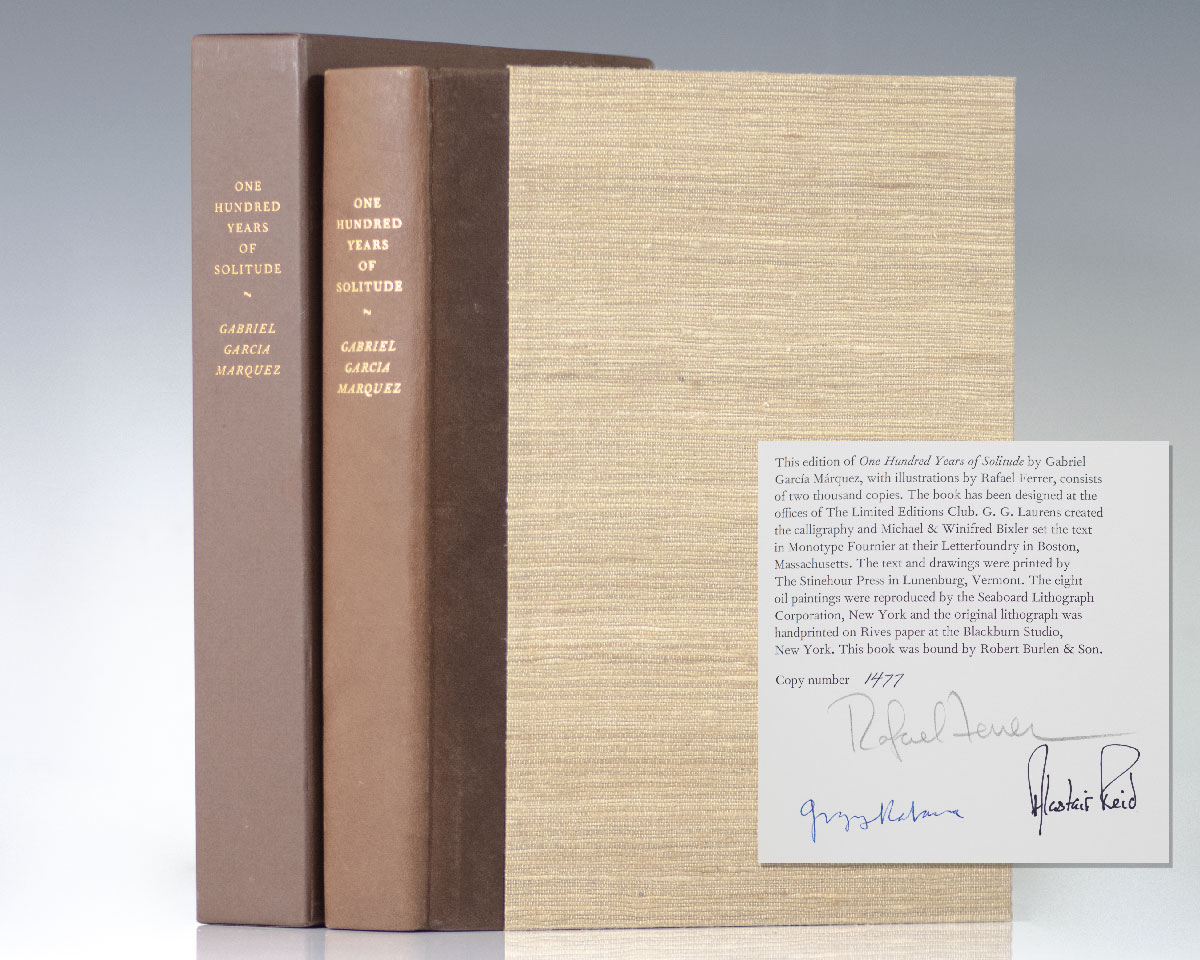 ONE
HUNDRED
YEARS
OF
SOLITUDE
~
GABRIEL
GARCIA
MARQUEZ
ONE
HUNDRED
YEARS
OF
SOLITUDE
~
GABRIEL
GARCIA
MARQUEZ
This edition of One Hundred Years of Solitude by Gabriel
García Márquez, with illustrations by Rafael Ferrer, consists
of two thousand copies. The book has been designed at the
offices of The Limited Editions Club. G. G. Laurens created
the calligraphy and Michael & Winifred Bixler set the text
in Monotype Fournier at their Letterfoundry in Boston,
Massachusetts. The text and drawings were printed by
The Stinehour Press in Lunenburg, Vermont. The eight
oil paintings were reproduced by the Seaboard Lithograph
Corporation, New York and the original lithograph was
handprinted on Rives paper at the Blackburn Studio,
New York. This book was bound by Robert Burlen & Son.
Copy number 1477
Rafael Ferrer
Alastair Reid